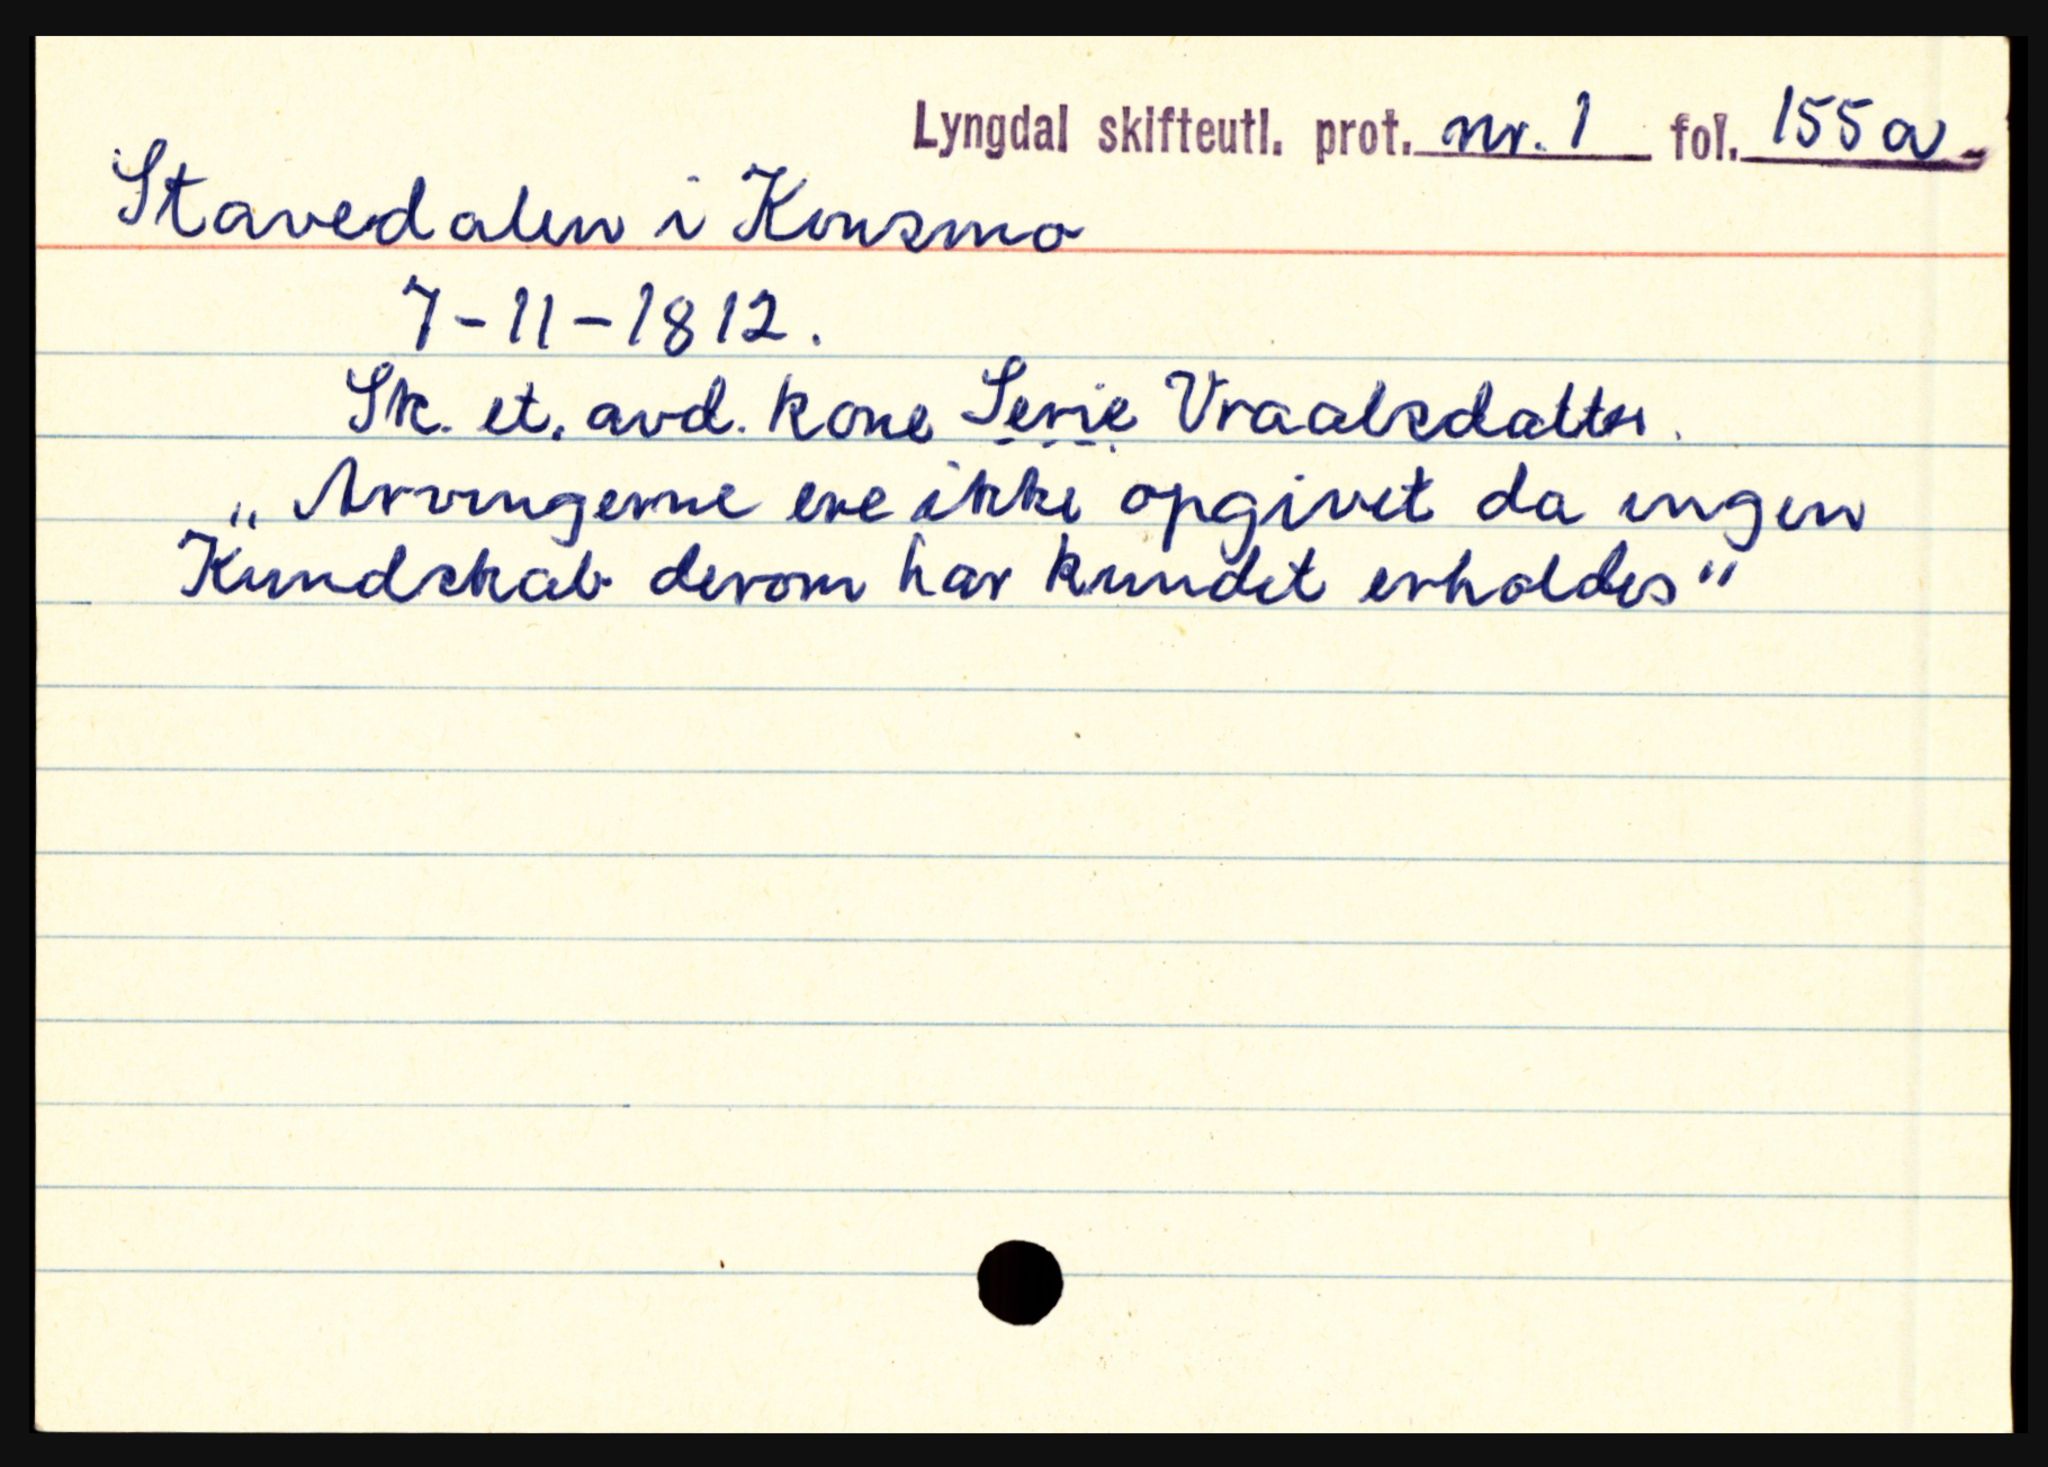 Lyngdal skifteutl. prot. nr. 1 fol. 155a
Stavedalen i Konsmo
7-11-1812.
Sk. et. avd. kone Serie Vraalsdatter.
„Arvingerne ere ikke opgivet da ingen
Kundskab derom har kundet erholdes"